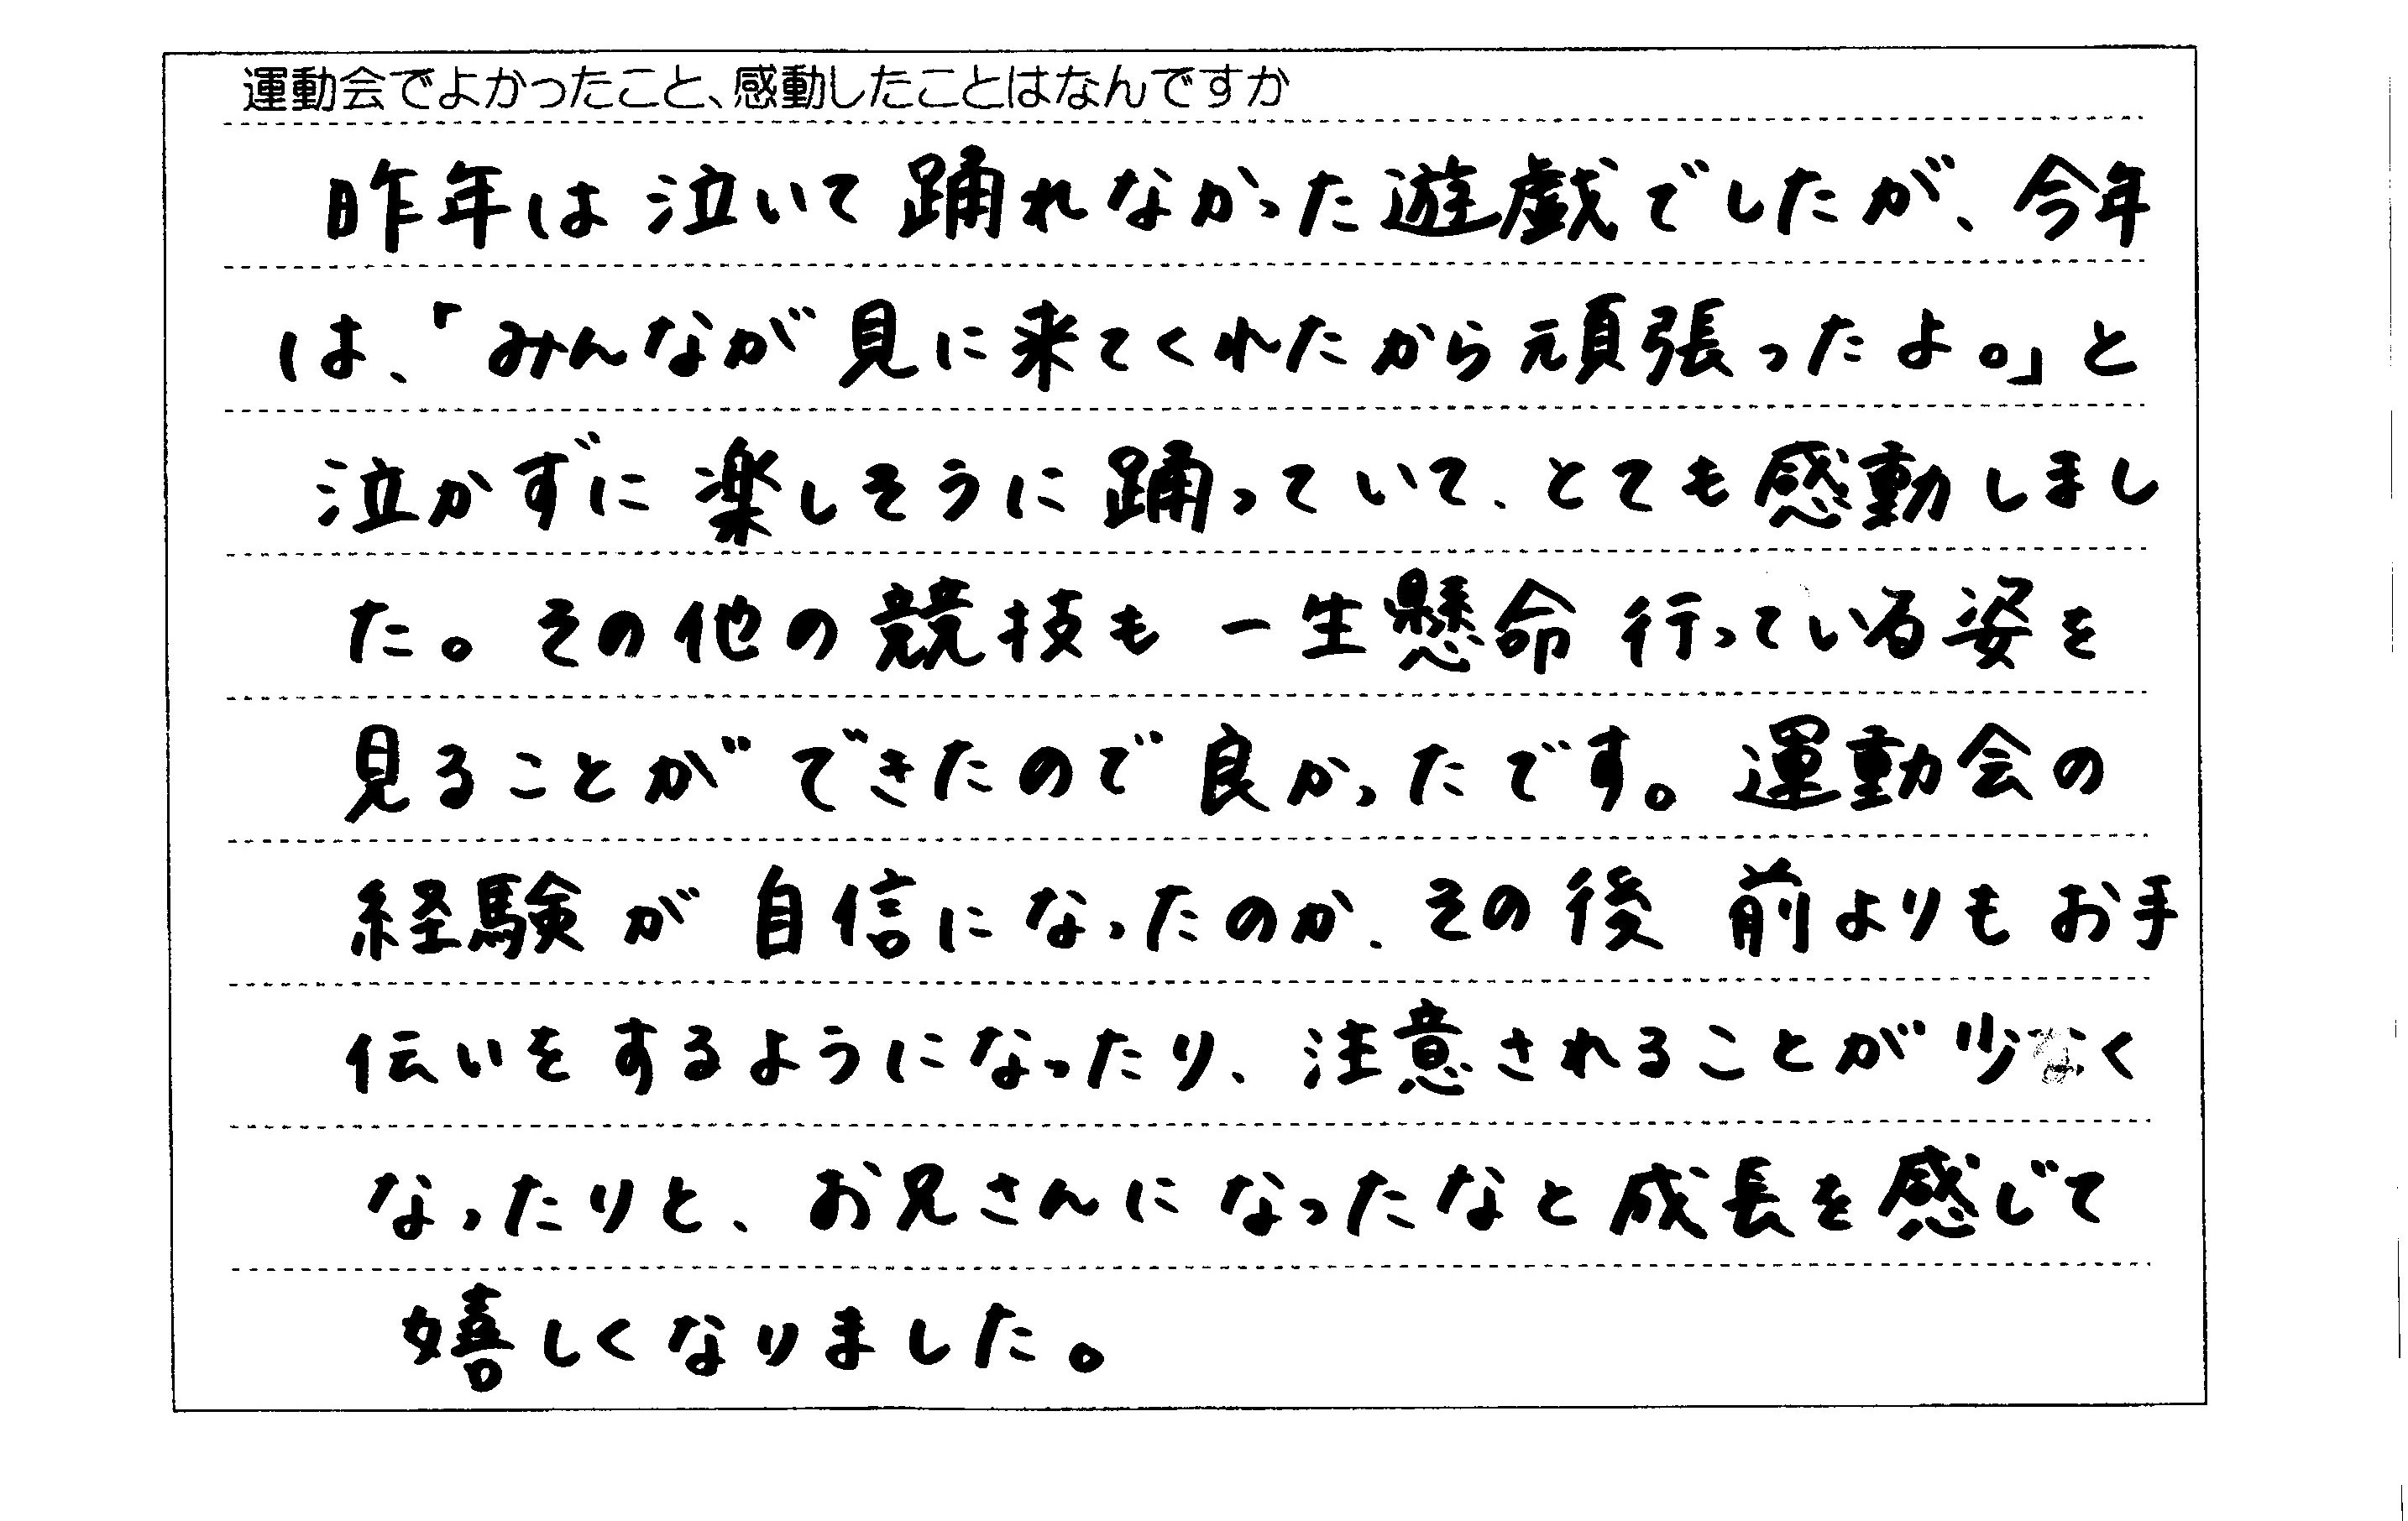 運動会でよかったこと、感動したことはなんですか
昨年は泣いて踊れなかった遊戯でしたが、今年
は、「みんなが見に来てくれたから頑張ったよ。」と
泣かずに楽しそうに踊っていて、とても感動しまし
た。その他の競技も一生懸命行っている姿を
見ることができたので良かったです。運動会の
経験が自信になったのか、その後前よりもお手
伝いをするようになったり、注意されることが少なく
なったりと、お兄さんになったなと成長を感じて
嬉しくなりました。